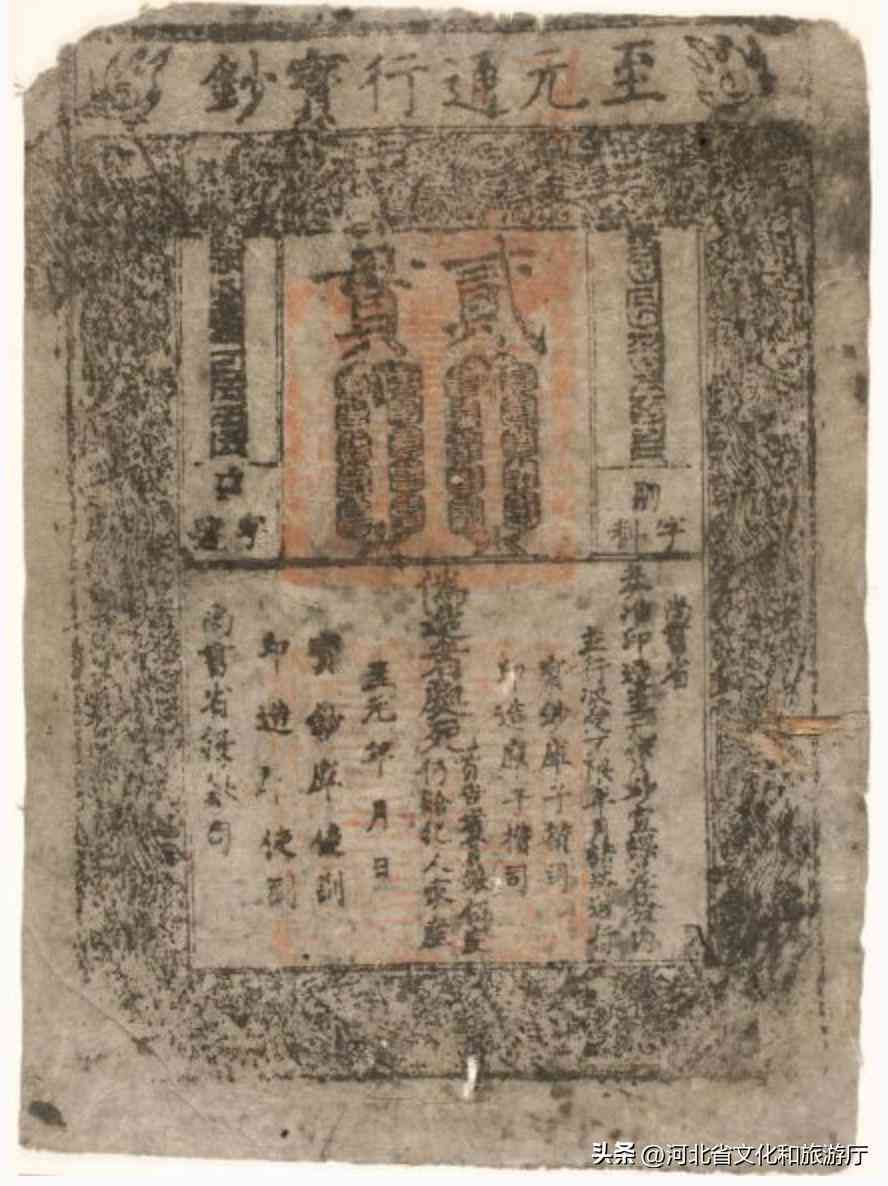 至元通行寶鈔
貳貫
字料
字號
尚書省
奏准印造至元寶鈔宣課差役內
並行收受不限年月諸路通行
寶鈔庫子攢司
印造庫子攢司
偽造者處死
首告者賞銀伍定
仍給犯人家產
至元 年 月 日
寶鈔庫使副
印造庫使副
尚書省提舉司
头条 @河北省文化和旅游厅